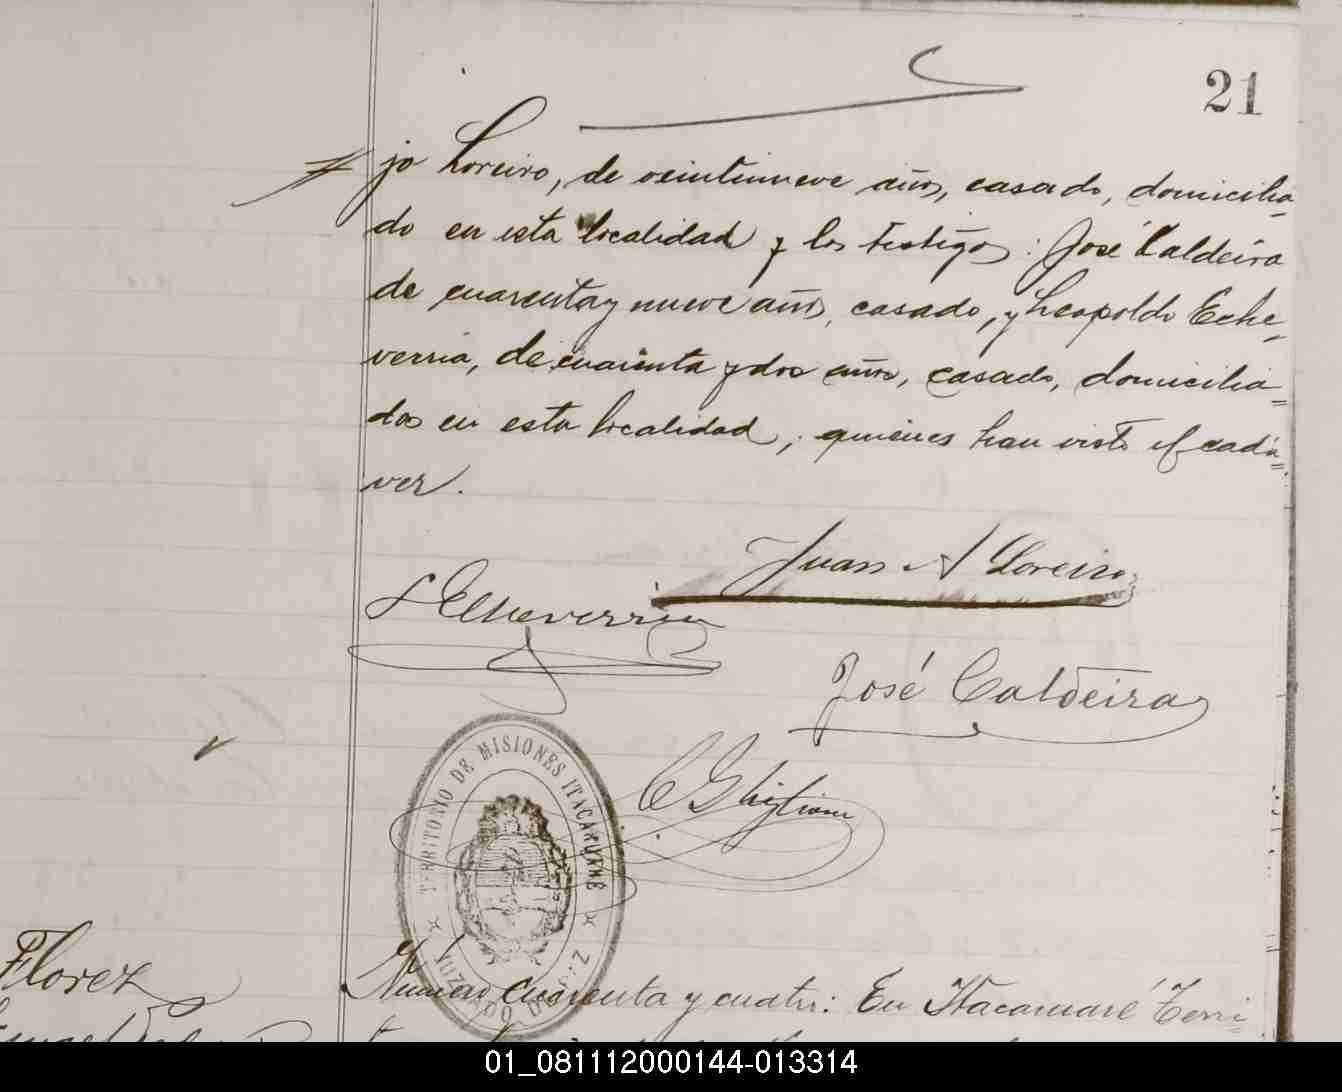 21
jo Loreiro, de veintinueve años, casado, domicilia-
do en esta localidad y los testigos: José Caldeira
de cuarenta y nueve años, casado, y Leopoldo Eche-
verria, de cuarenta y dos años, casado, domicilia=
dos en esta localidad, quienes han visto el cadá=
ver.
Juan A Loreiro
L Echeverria
José Caldeira
C Ghigliani
TERRITORIO DE MISIONES ITACARUARÉ
JUZGADO DE PAZ
Florez
Número cuarenta y cuatro: En Itacaruaré Terri-
01_081112000144-013314